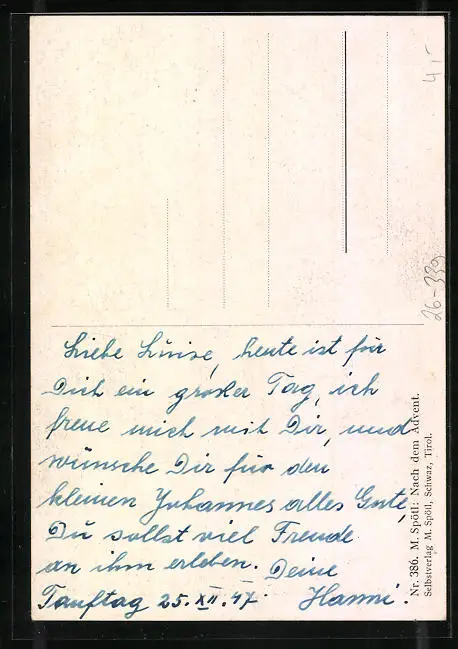 Liebe Luise, heute ist für
Dich ein großer Tag, ich
freue mich mit Dir, und
wünsche Dir für den
kleinen Johannes alles Gute,
Du sollst viel Freude
an ihm erleben. Deine
Tauftag 25.XII.47. Hanni.
Nr. 386. M. Spötl: Nach dem Advent.
Selbstverlag M. Spötl, Schwaz, Tirol.
4,-
26-339